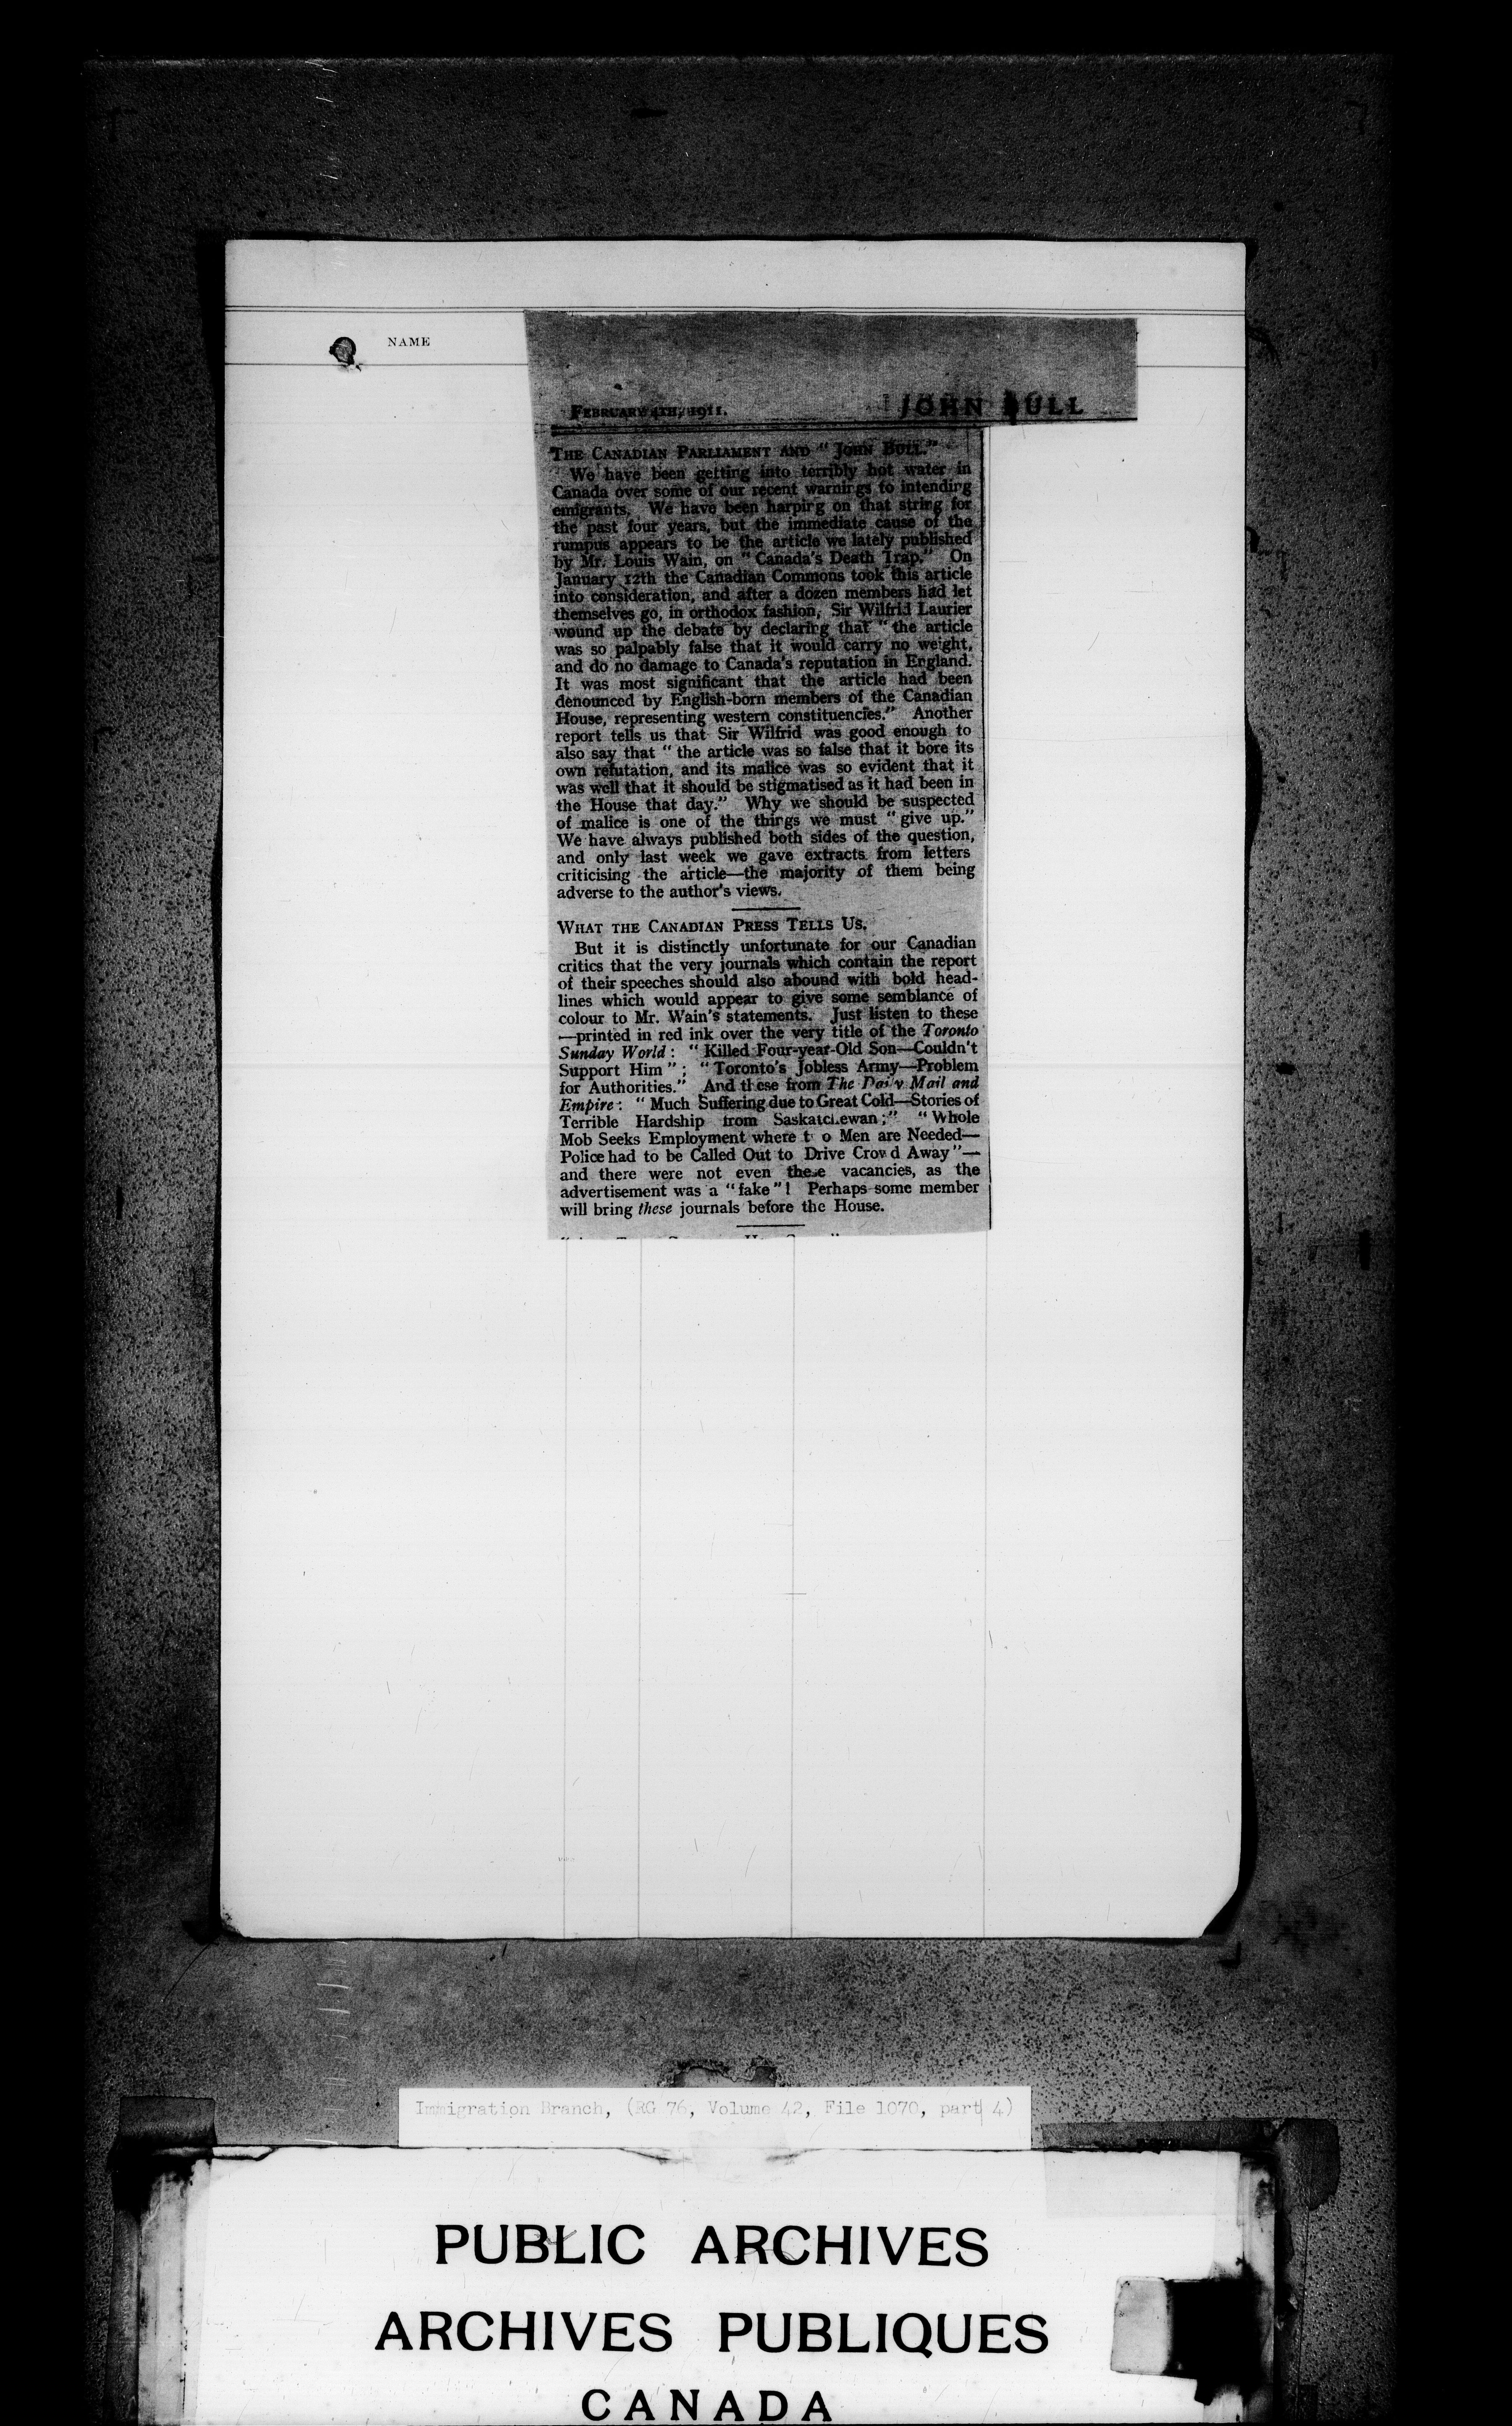 NAME
FEBRUARY 4TH, 1911.
JOHN BULL
THE CANADIAN PARLIAMENT AND "JOHN BULL."
We have been getting into terribly hot water in
Canada over some of our recent warnings to intending
emigrants. We have been harping on that string for
the past four years, but the immediate cause of the
rumpus appears to be the article we lately published
by Mr. Louis Wain, on "Canada's Death Trap." On
January 12th the Canadian Commons took this article
into consideration, and after a dozen members had let
themselves go, in orthodox fashion, Sir Wilfrid Laurier
wound up the debate by declaring that "the article
was so palpably false that it would carry no weight,
and do no damage to Canada's reputation in England.
It was most significant that the article had been
denounced by English-born members of the Canadian
House, representing western constituencies." Another
report tells us that Sir Wilfrid was good enough to
also say that "the article was so false that it bore its
own refutation, and its malice was so evident that it
was well that it should be stigmatised as it had been in
the House that day." Why we should be suspected
of malice is one of the things we must "give up."
We have always published both sides of the question,
and only last week we gave extracts from letters
criticising the article—the majority of them being
adverse to the author's views.
WHAT THE CANADIAN PRESS TELLS US.
But it is distinctly unfortunate for our Canadian
critics that the very journals which contain the report
of their speeches should also abound with bold head-
lines which would appear to give some semblance of
colour to Mr. Wain's statements. Just listen to these
—printed in red ink over the very title of the Toronto
Sunday World: "Killed Four-year-Old Son—Couldn't
Support Him"; "Toronto's Jobless Army—Problem
for Authorities." And these from The Daily Mail and
Empire: "Much Suffering due to Great Cold—Stories of
Terrible Hardship from Saskatchewan;" "Whole
Mob Seeks Employment where two Men are Needed—
Police had to be Called Out to Drive Crowd Away"—
and there were not even these vacancies, as the
advertisement was a "fake"! Perhaps some member
will bring these journals before the House.
Immigration Branch, (RG 76, Volume 42, File 1070, part 4)
PUBLIC ARCHIVES
ARCHIVES PUBLIQUES
CANADA